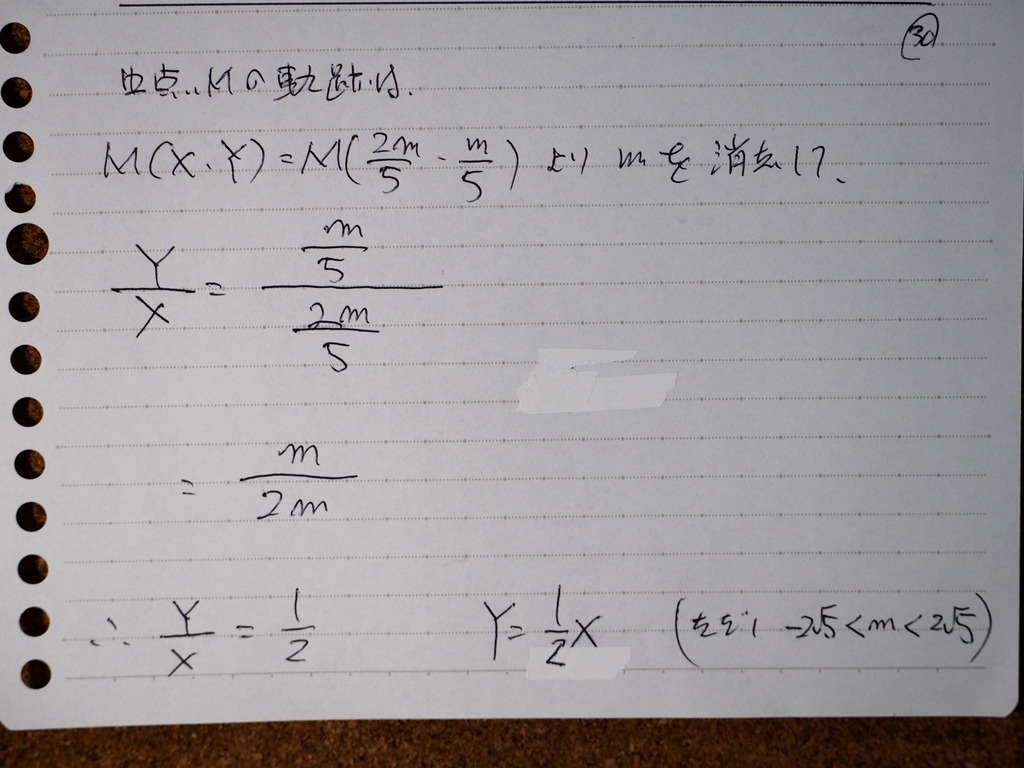 30
中点.. Mの軌跡は.
M(X.Y)=M(2m/5 . m/5) より mを消去して、
Y/X = (m/5)/(2m/5)
= m/2m
∴ Y/X = 1/2 Y=1/2X (ただし -2√5<m<2√5)